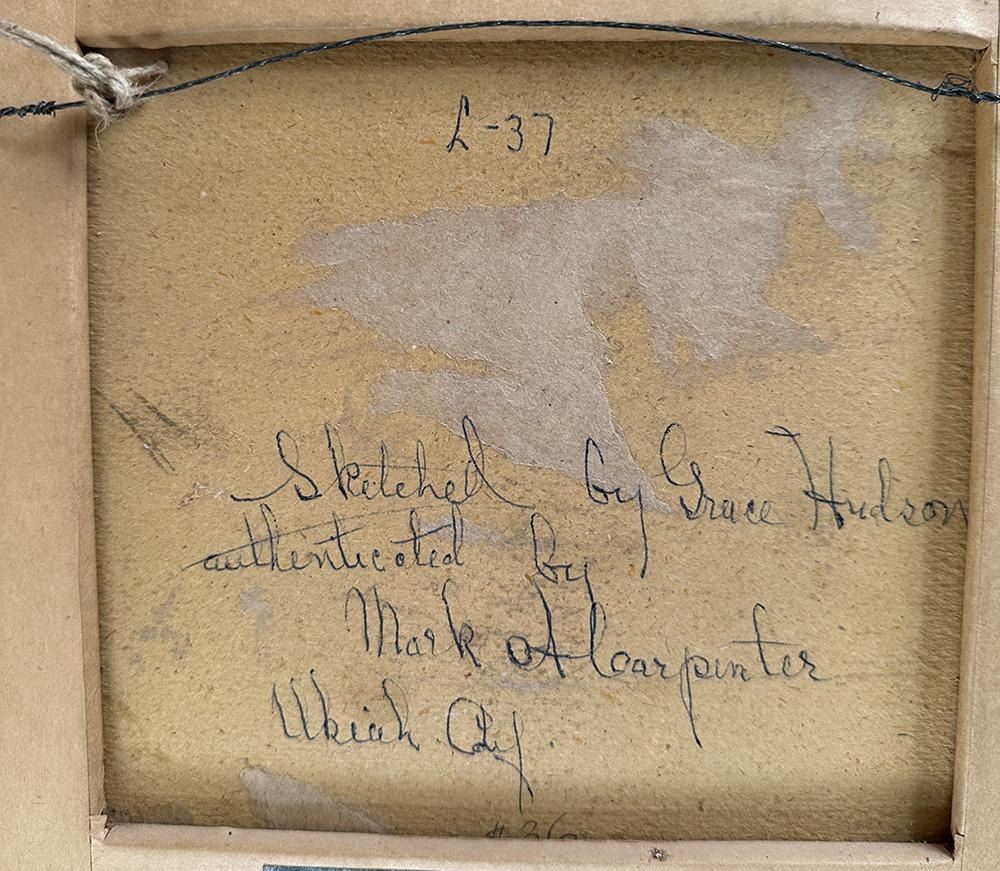 L-37
Sketched by Grace Hudson
authenticated by
Mark A Carpenter
Ukiah Calif.
# 36